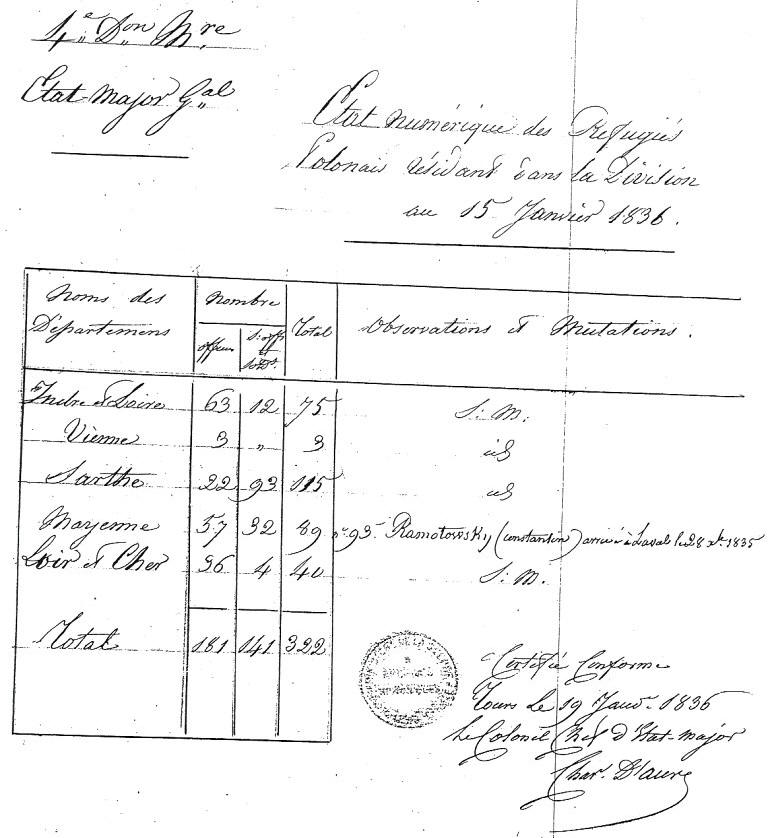 4.e D.on M.re
Etat Major G.al
Etat numérique des Refugiés
Polonais résidant dans la Division
au 15 Janvier 1836.
Noms des Départemens | Nombre | Total | Observations et Mutations.
officiers | S: offrs et Soldts
Indre et Loire | 63 | 12 | 75 | S: M.
Vienne | 3 | " | 3 | id
Sarthe | 22 | 93 | 115 | id
Mayenne | 57 | 32 | 89 | no 93. Ramotowsky (constantin) arrivé à Laval le 28 Xbre 1835
Loir et Cher | 36 | 4 | 40 | S: M.
Total | 181 | 141 | 322
Certifié Conforme
Tours le 19 Janv. 1836
Le Colonel Chef d'Etat-major
Char. D'aure